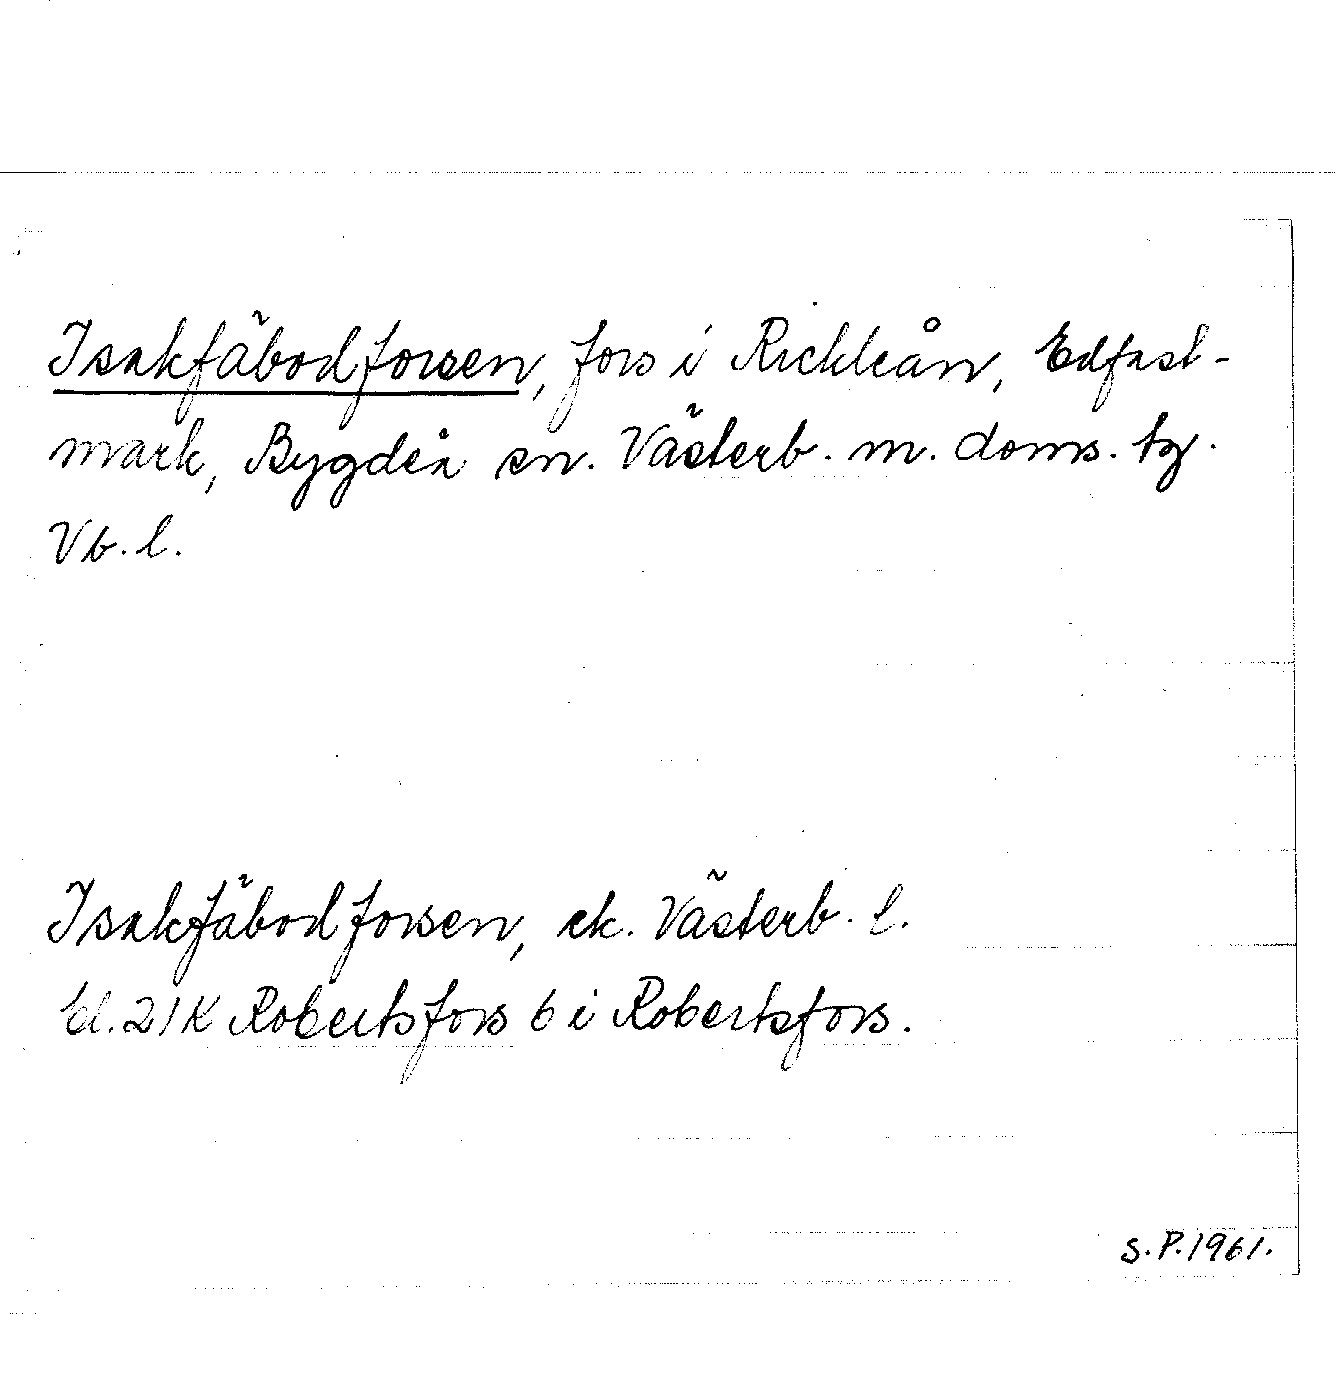 Isakfäbodforsen, fors i Rickleån, Edfast-
mark, Bygdeå sn. Västerb. m. doms. tg.
Vb. l.
Isakfäbodforsen, ek. Västerb. l.
bl. 21K Robertsfors 6 i Robertsfors.
S.P. 1961.